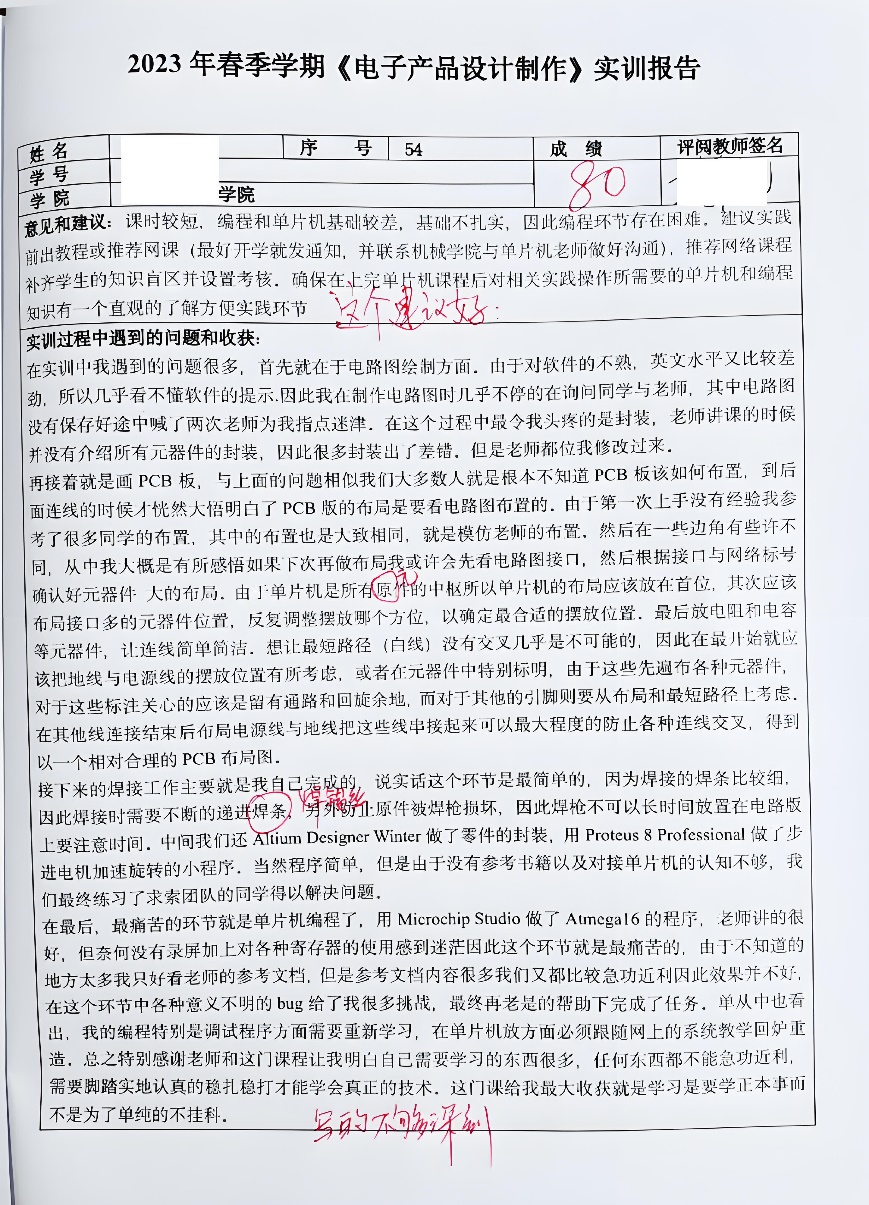 2023 年春季学期《电子产品设计制作》实训报告
姓 名 序 号 54 成 绩 评阅教师签名
学 号 80
学 院 学院
意见和建议：课时较短，编程和单片机基础较差，基础不扎实，因此编程环节存在困难。建议实践
前出教程或推荐网课（最好开学就发通知，并联系机械学院与单片机老师做好沟通），推荐网络课程
补齐学生的知识盲区并设置考核。确保在上完单片机课程后对相关实践操作所需要的单片机和编程
知识有一个直观的了解方便实践环节 这个建议好.
实训过程中遇到的问题和收获：
在实训中我遇到的问题很多，首先就在于电路图绘制方面。由于对软件的不熟，英文水平又比较差
劲，所以几乎看不懂软件的提示.因此我在制作电路图时几乎不停的在询问同学与老师，其中电路图
没有保存好途中喊了两次老师为我指点迷津。在这个过程中最令我头疼的是封装，老师讲课的时候
并没有介绍所有元器件的封装，因此很多封装出了差错。但是老师都位我修改过来。
再接着就是画 PCB 板，与上面的问题相似我们大多数人就是根本不知道 PCB 板该如何布置，到后
面连线的时候才恍然大悟明白了 PCB 版的布局是要看电路图布置的．由于第一次上手没有经验我参
考了很多同学的布置，其中的布置也是大致相同，就是模仿老师的布置．然后在一些边角有些许不
同，从中我大概是有所感悟如果下次再做布局我或许会先看电路图接口，然后根据接口与网络标号
元
确认好元器件 大的布局．由于单片机是所有原件的中枢所以单片机的布局应该放在首位，其次应该
布局接口多的元器件位置，反复调整摆放哪个方位，以确定最合适的摆放位置．最后放电阻和电容
等元器件，让连线简单简洁．想让最短路径（白线）没有交叉几乎是不可能的，因此在最开始就应
该把地线与电源线的摆放位置有所考虑，或者在元器件中特别标明，由于这些先遍布各种元器件，
对于这些标注关心的应该是留有通路和回旋余地，而对于其他的引脚则要从布局和最短路径上考虑．
在其他线连接结束后布局电源线与地线把这些线串接起来可以最大程度的防止各种连线交叉，得到
以一个相对合理的 PCB 布局图．
接下来的焊接工作主要就是我自己完成的，说实话这个环节是最简单的，因为焊接的焊条比较细，
焊锡丝
因此焊接时需要不断的递进焊条，另外防止原件被焊枪损坏，因此焊枪不可以长时间放置在电路版
上要注意时间．中间我们还 Altium Designer Winter 做了零件的封装，用 Proteus 8 Professional 做了步
进电机加速旋转的小程序．当然程序简单，但是由于没有参考书籍以及对接单片机的认知不够，我
们最终练习了求索团队的同学得以解决问题．
在最后，最痛苦的环节就是单片机编程了，用 Microchip Studio 做了 Atmega16 的程序，老师讲的很
好，但奈何没有录屏加上对各种寄存器的使用感到迷茫因此这个环节就是最痛苦的，由于不知道的
地方太多我只好看老师的参考文档，但是参考文档内容很多我们又都比较急功近利因此效果并不好，
在这个环节中各种意义不明的 bug 给了我很多挑战，最终再老是的帮助下完成了任务．单从中也看
出，我的编程特别是调试程序方面需要重新学习，在单片机放方面必须跟随网上的系统教学回炉重
造．总之特别感谢老师和这门课程让我明白自己需要学习的东西很多，任何东西都不能急功近利，
需要脚踏实地认真的稳扎稳打才能学会真正的技术．这门课给我最大收获就是学习是要学正本事而
不是为了单纯的不挂科．
写的不够深刻